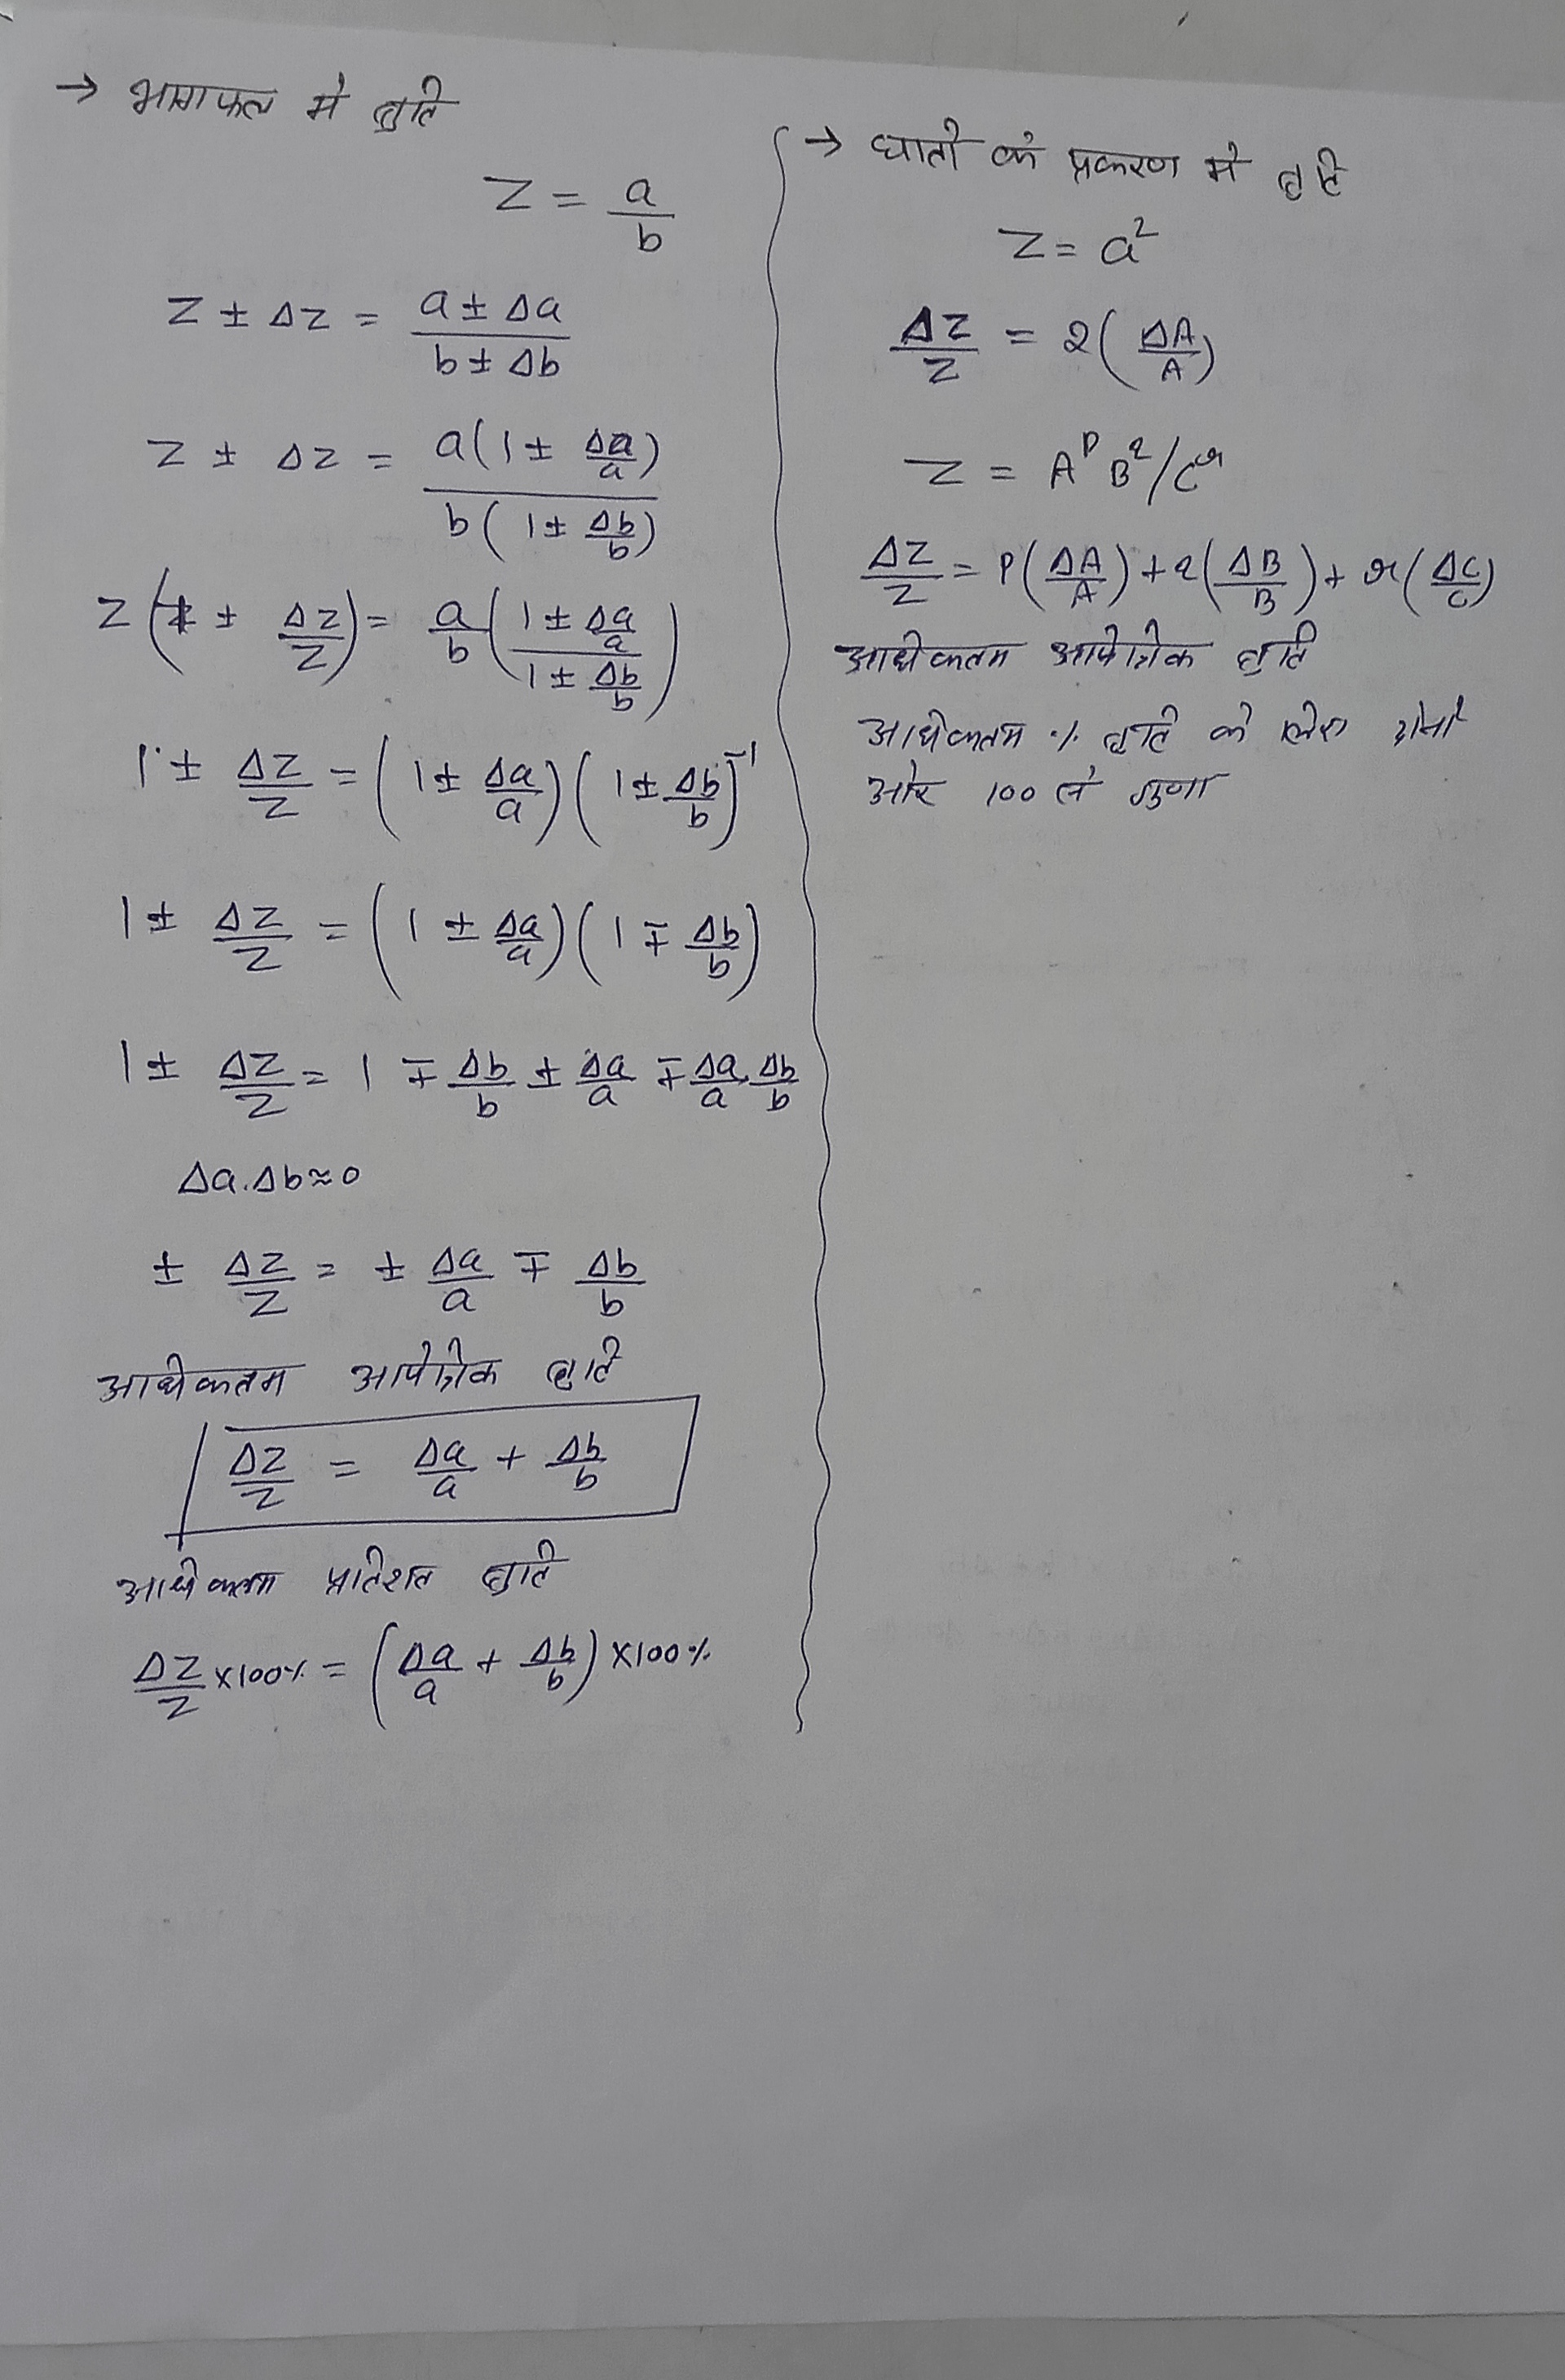 → भागफल में त्रुटि
Z = a/b
Z ± ΔZ = (a ± Δa)/(b ± Δb)
Z ± ΔZ = a(1 ± Δa/a) / b(1 ± Δb/b)
Z(1 ± ΔZ/Z) = a/b ((1 ± Δa/a)/(1 ± Δb/b))
1 ± ΔZ/Z = (1 ± Δa/a)(1 ± Δb/b)⁻¹
1 ± ΔZ/Z = (1 ± Δa/a)(1 ∓ Δb/b)
1 ± ΔZ/Z = 1 ∓ Δb/b ± Δa/a ∓ Δa/a . Δb/b
Δa.Δb≈0
± ΔZ/Z = ± Δa/a ∓ Δb/b
अधिकतम आपेक्षिक त्रुटि
ΔZ/Z = Δa/a + Δb/b
अधिकतम प्रतिशत त्रुटि
ΔZ/Z ×100% = (Δa/a + Δb/b) ×100%
→ घातों के प्रकरण में त्रुटि
Z = a²
ΔZ/Z = 2(ΔA/A)
Z = Aᴾ B²/Cʳ
ΔZ/Z = P(ΔA/A) + 2(ΔB/B) + r(ΔC/C)
अधिकतम आपेक्षिक त्रुटि
अधिकतम % त्रुटि के लिए दोनों
ओर 100 से गुणा